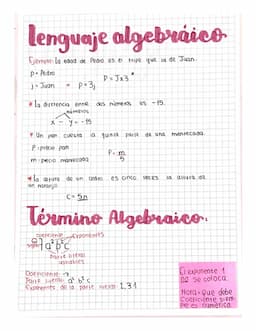 lenguaje algebráico
Ejemplo: la edad de Pedro es el triple que la de Juan.
p = Pedro
j = Juan = p = 3j P = J x 3
* La diferencia entre dos números es -15.
números
x - y = -15
* Un pan cuesta la quinta parte de una mantecada.
P: precio pan
m: precio mantecada P = m/5
* La altura de un cedro es cinco veces la altura de
un naranjo.
C = 5n
Término Algebraico.
coeficiente exponentes
a b c
Parte literal
variables
Coeficiente
Parte literal: a b c
Exponentes de la parte literal 1, 3, 1
El exponente 1
no se coloca.
Nota: que debe
Coeficiente siem
pre es numérica